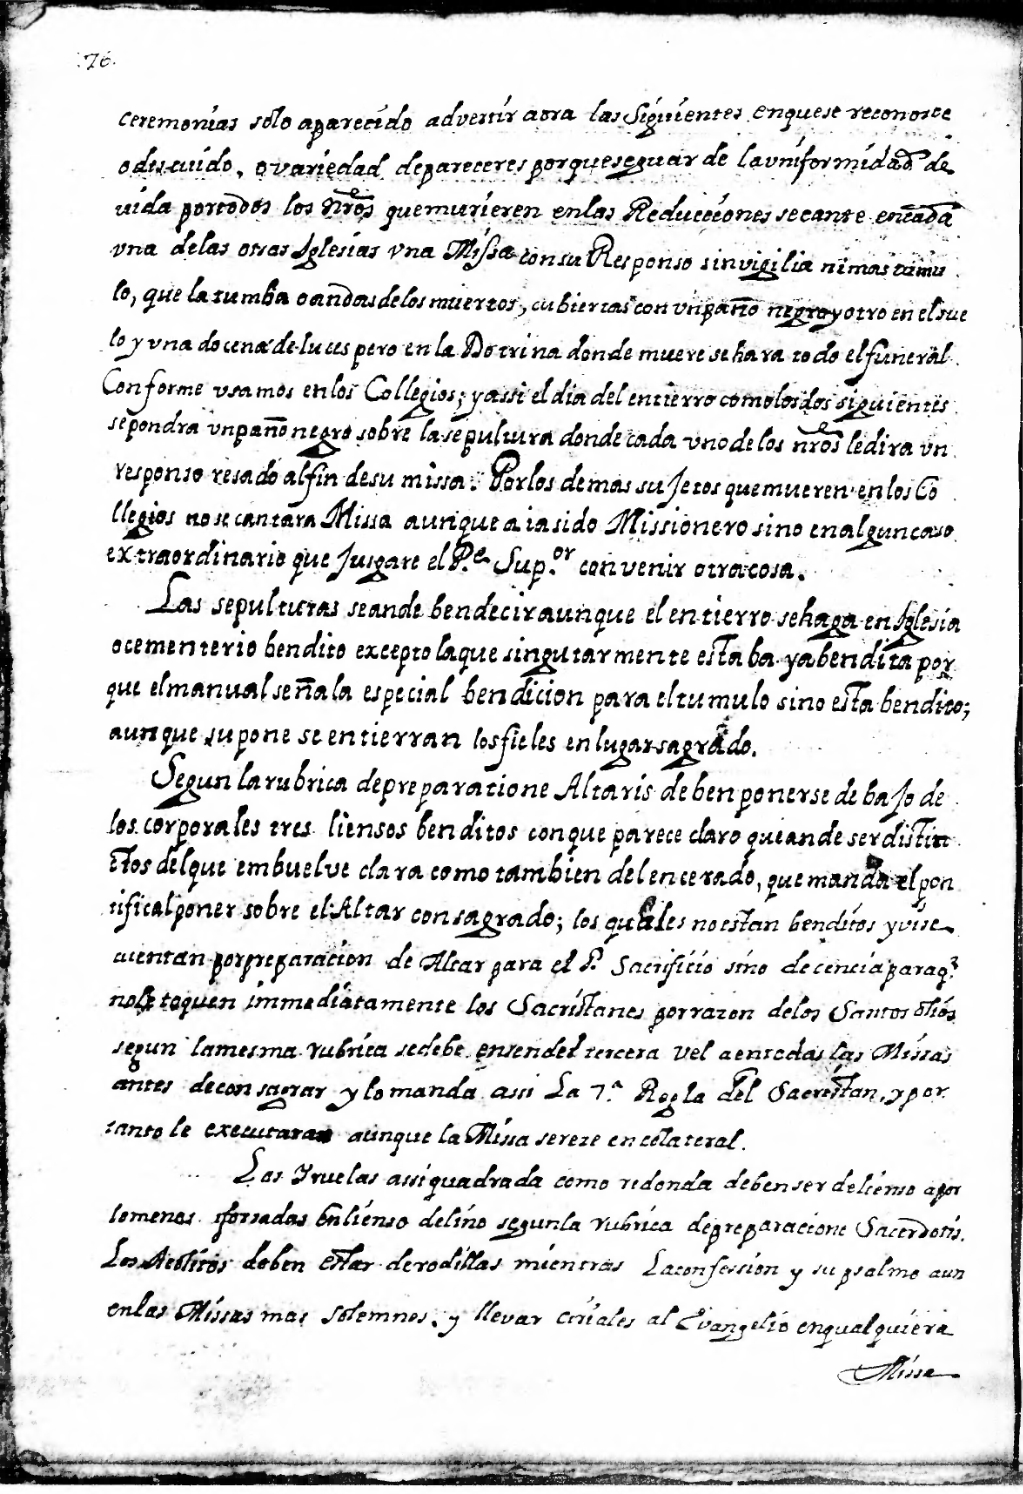 76.
ceremonias solo a parecido advertir aora las siguientes enquese reconosce
o descuido, o variedad depareceres porqueseguarde la uniformidad de
uida portodos los nros que murieren enlas Reducciones secante encada
vna delas otras Iglesias vna Missa consu Responso sin vigilia ni mas tumu
lo, que la tumba o andas delos muertos, cubiertas con vn paño negro y otro en el sue
lo y vna docena de luces pero en la Dotrina donde muere se hara todo el funeral
Conforme vsamos en los Collegios; y assi el dia del entierro como los dos siguientes
se pondra vn paño negro sobre la sepultura donde cada vno de los nros le dira vn
responso resado al fin de su missa. Por los demas sujetos que mueren en los Co
llegios no se cantara Missa aunque aia sido Missionero sino en algun caso
extraordinario que Jusgare el P.e Sup.or convenir otra cosa.
Las sepulturas se ande bendecir aunque el entierro se haga en Iglesia
o cementerio bendito excepto la que singularmente estaba ya bendita por
que el manual señala especial bendicion para el tumulo sino esta bendito;
aunque supone se entierran los fieles en lugar sagrado.
Segun la rubrica de preparatione Altaris deben ponerse debajo de
los corporales tres liensos benditos con que parece claro que ande ser distin
ctos del que embuelve el ara como tambien del encerado, que manda el pon
tifical poner sobre el Altar consagrado; los quales no estan benditos y vise
uientan por preparacion de Altar para el P. Sacrificio sino decencia para q.
no le toquen immediatamente los Sacristanes por razon delos Santos olios
segun la mesma rubrica se debe ensender tercera vela en todas las Missas
antes de consagrar y lo manda assi La 7.a Regla del Sacristan, y por
tanto le executaran aunque la Missa sereze en colateral.
Las Yruelas assi quadrada como redonda deben ser de lienso a por
lomenos aforsadas en lienso de lino segun la rubrica de preparacione Sacerdotis.
Los Acolitos deben estar de rodillas mientras La confession y su psalmo aun
en las Missas mas solemnes, y llevar ciriales al Evangelio en qualquiera
Missa